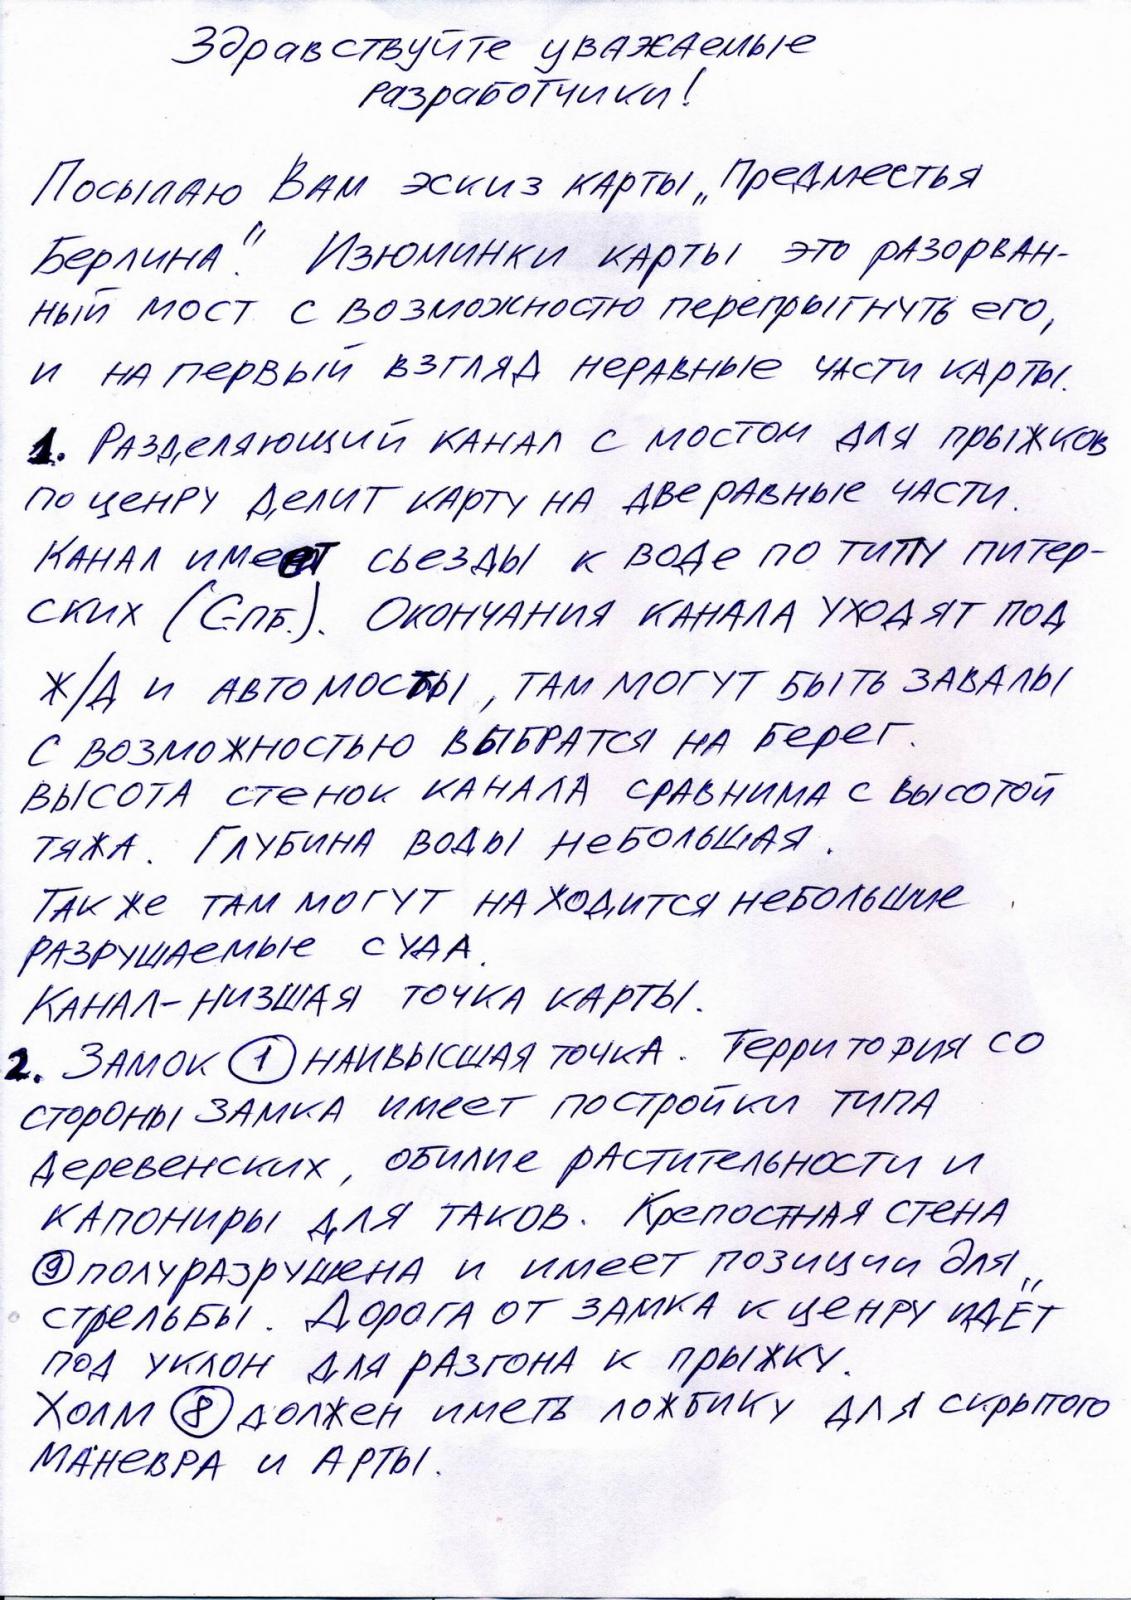 Здравствуйте уважаемые
разработчики!
Посылаю Вам эскиз карты „Предместья
Берлина". Изюминки карты это разорван-
ный мост с возможностю перепрыгнуть его,
и на первый взгляд неравные части карты.
1. Разделяющий канал с мостом для прыжков
по ценру делит карту на две равные части.
Канал имеет сьезды к воде по типу питер-
ских (С-пб.). Окончания канала уходят под
ж/д и автомосты, там могут быть завалы
с возможностью выбратся на берег.
Высота стенок канала сравнима с высотой
тяжа. Глубина воды небольшая.
Так же там могут находится небольшие
разрушаемые суда.
Канал-низшая точка карты.
2. Замок 1 наивысшая точка. Территория со
стороны замка имеет постройки типа
деревенских, обилие растительности и
капониры для таков. Крепостная стена
9 полуразрушена и имеет позиции для
стрельбы. Дорога от замка к ценру идёт
под уклон для разгона к прыжку.
Холм 8 должен иметь ложбику для скрытого
маневра и арты.